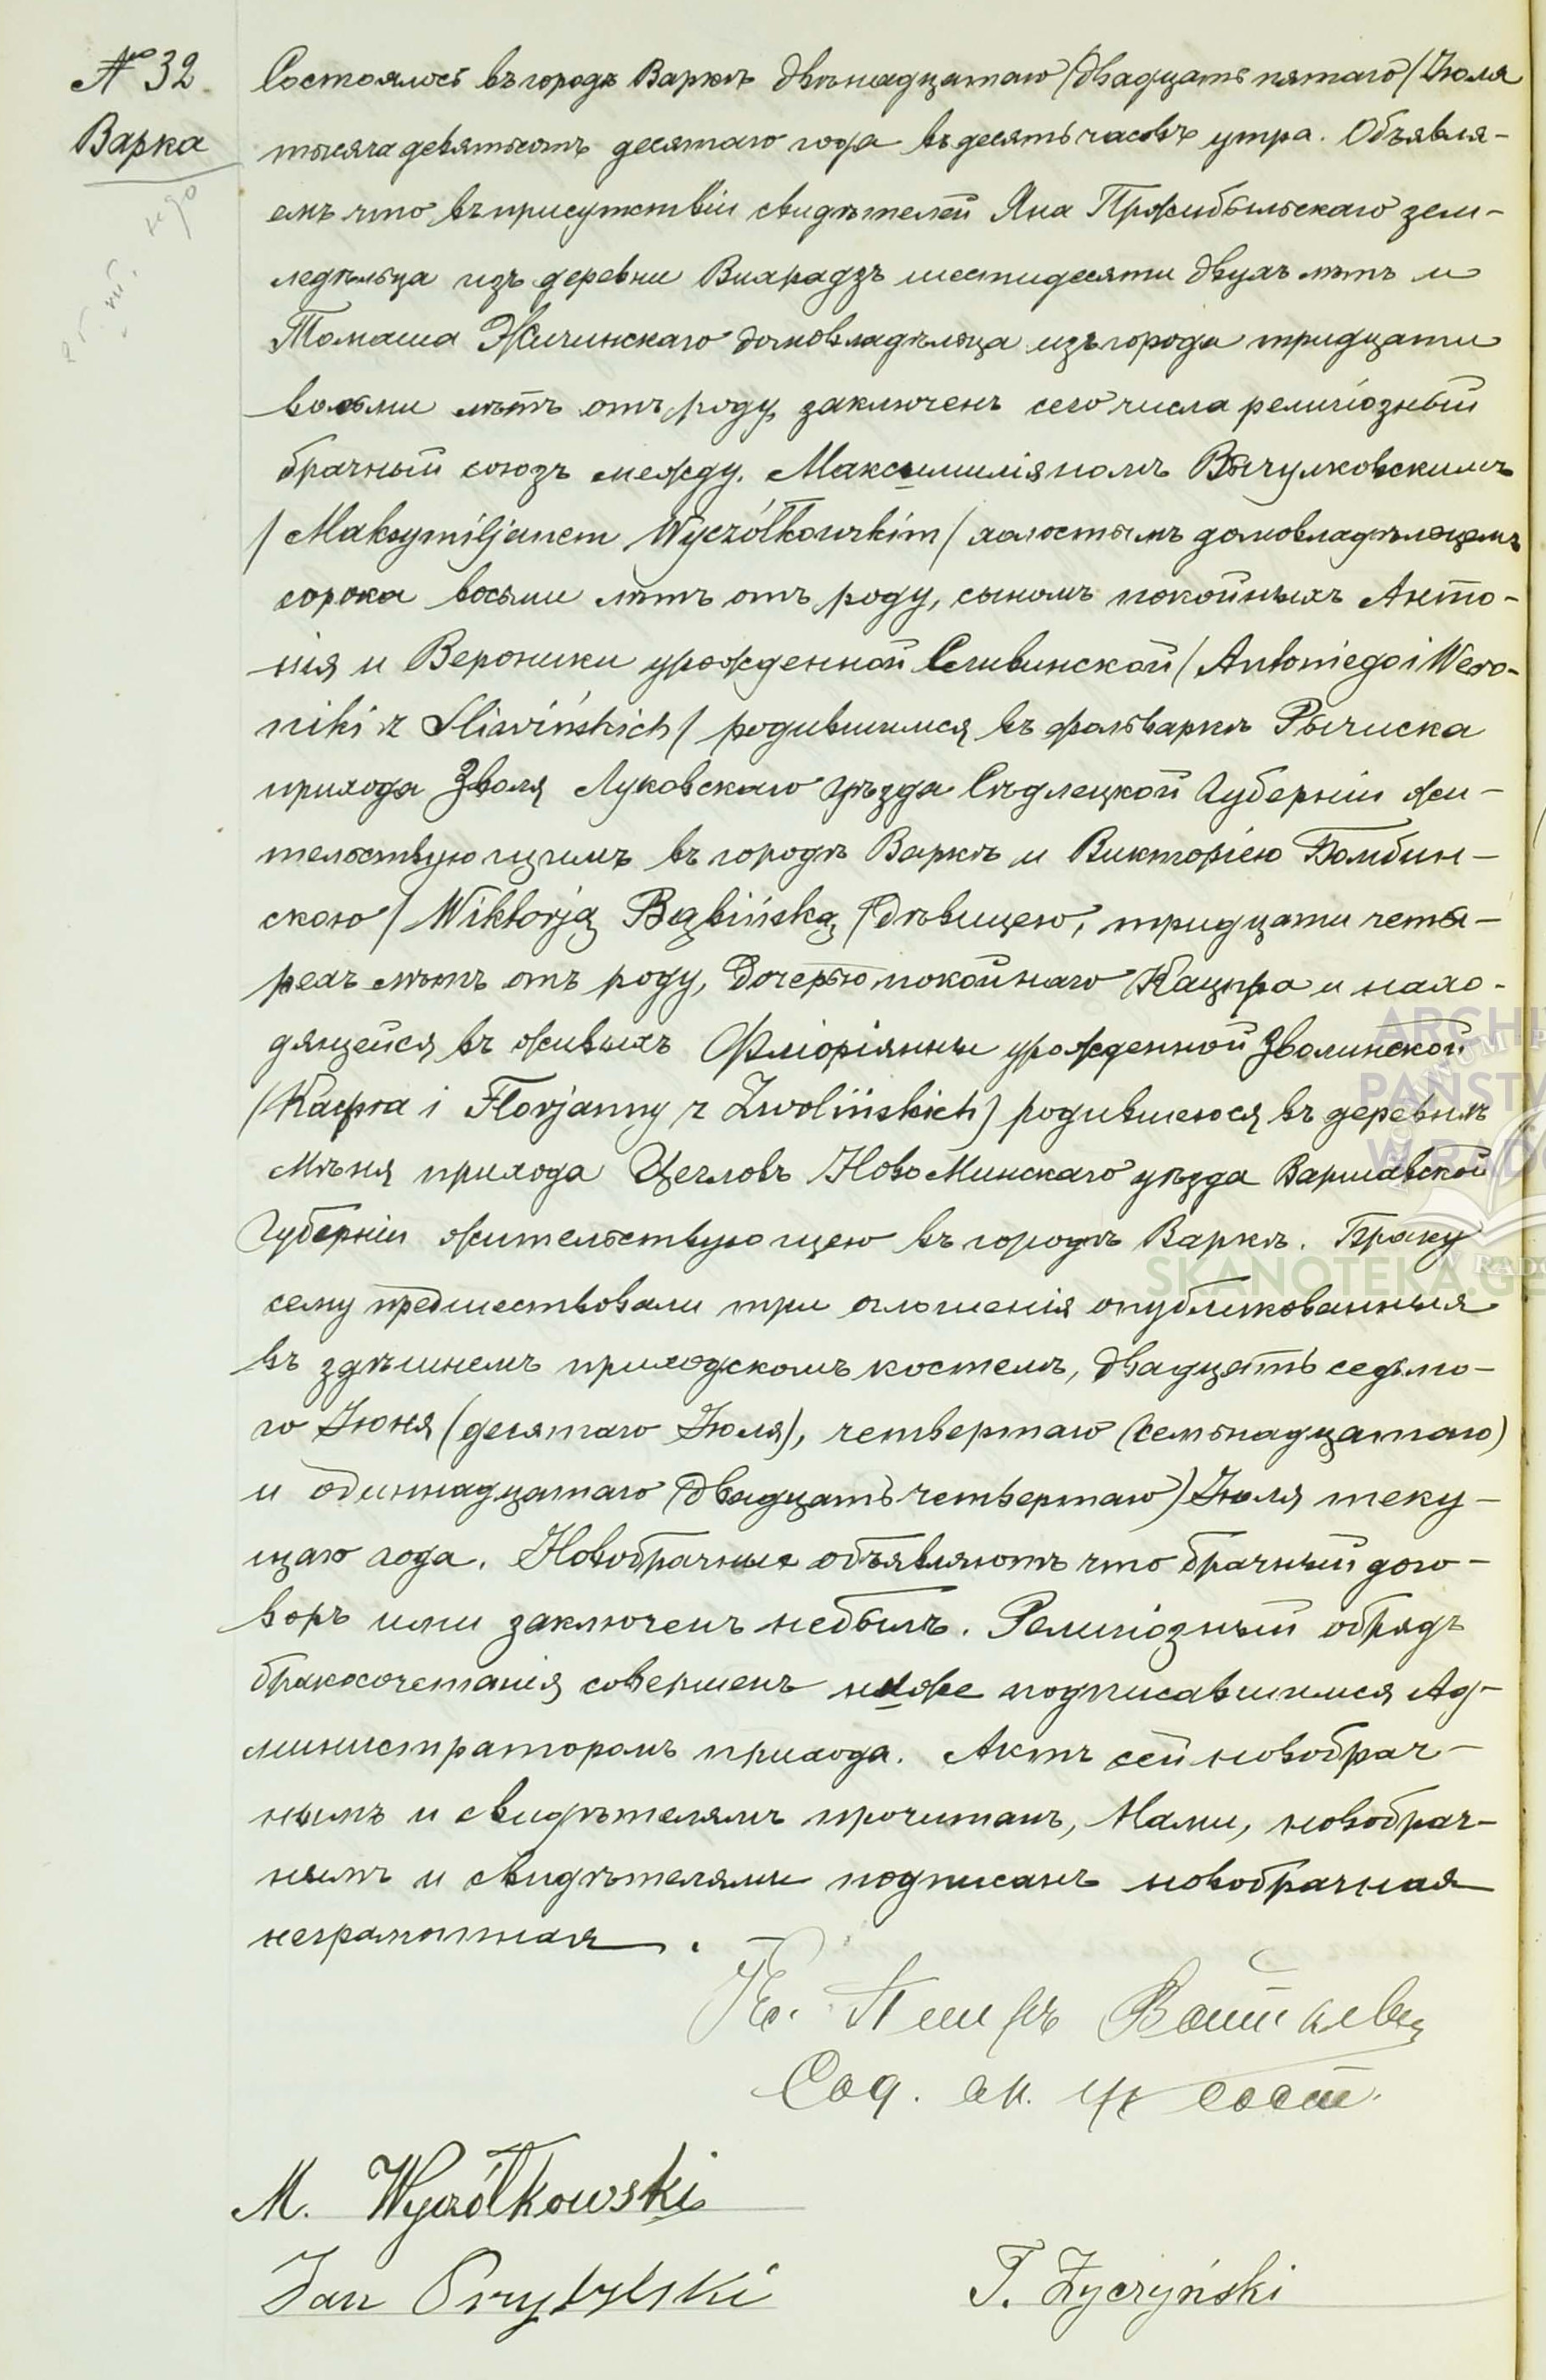 № 32.
Варка
Состоялось въ городѣ Варкѣ двѣнадцатаго /двадцать пятаго/ Іюля
тысяча девятьсотъ десятаго года въ десять часовъ утра. Объявля-
емъ что въ присутствіи свидѣтелей Яна Пржибыльскаго зем-
ледѣльца изъ деревни Вихрадзъ шестидесяти двухъ лѣтъ и
Томаша Жичинскаго домовладѣльца изъ города тридцати
восьми лѣтъ отъ роду, заключенъ сего числа религіозный
брачный союзъ между, Максимиліяномъ Вычулковскимъ
/Maksymiljanem Wyczółkowskim/ холостымъ домовладѣльцемъ
сорока восьми лѣтъ отъ роду, сыномъ покойныхъ Анто-
нія и Вероники урожденной Сливинской /Antoniego i Wero-
niki z Śliwińskich/ родившимся въ фольваркѣ Рычиска
прихода Зволя Луковскаго уѣзда Сѣдлецкой Губерніи жи-
тельствующимъ въ городѣ Варкѣ и Викторіею Бомбин-
скою /Wiktorją Bąbińską/ дѣвицею, тридцати четы-
рехъ лѣтъ отъ роду, дочерью покойнаго Кацпра и нахо-
дящейся въ живыхъ Флоріянны урожденной Зволинской
/Kacpra i Florjanny z Zwolińskich/ родившеюся въ деревнѣ
Мѣня прихода Цегловъ Ново Минскаго уѣзда Варшавской
Губерніи жительствующею въ городѣ Варкѣ. Браку
сему предшествовали три оглошенія опубликованныя
въ здѣшнемъ приходскомъ костелѣ, двадцать седьмо-
го Іюня (десятаго Іюля), четвертаго (семьнадцатаго)
и одиннадцатаго (двадцать четвертаго) Іюля теку-
щаго года. Новобрачные объявляютъ что брачный дого-
воръ ими заключенъ небылъ. Религіозный обрядъ
бракосочетанія совершенъ ниже подписавшимся Ад-
министраторомъ прихода. Актъ сей новобрач-
нымъ и свидѣтелямъ прочитанъ, Нами, новобрач-
нымъ и свидѣтелями подписанъ новобрачная
неграмотная.
Кс.
Сод. ак. гр. сост.
M. Wyczółkowski
Jan Przybylski
T. Życzyński
SKANOTEKA.GE